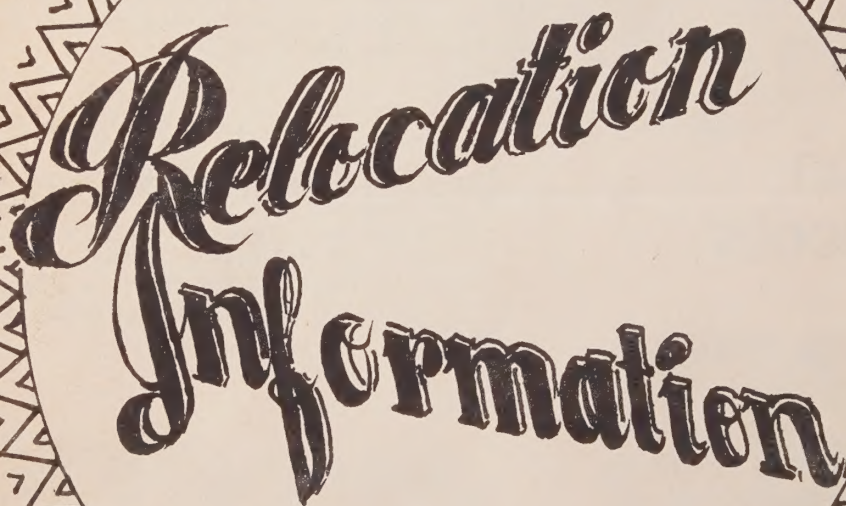 Relocation
Information